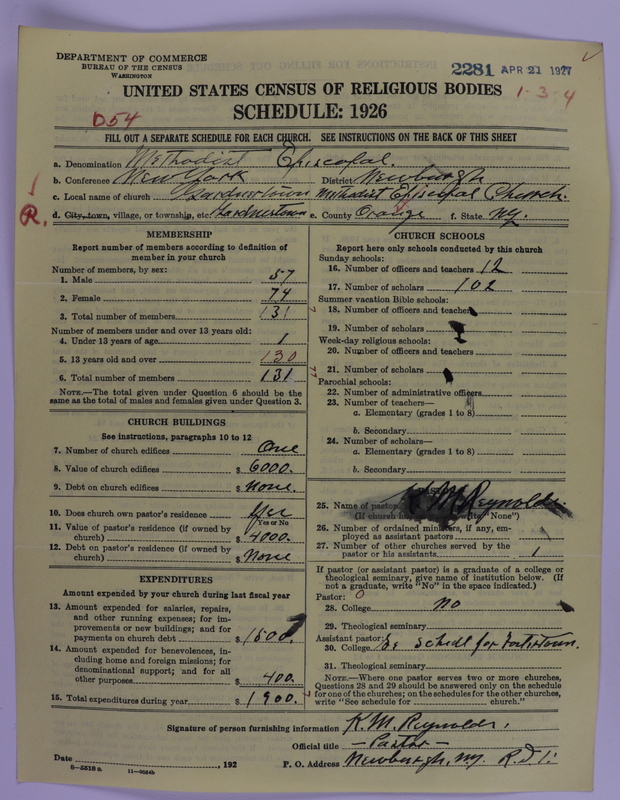 DEPARTMENT OF COMMERCE
BUREAU OF THE CENSUS
WASHINGTON
2281 APR 21 1927
UNITED STATES CENSUS OF RELIGIOUS BODIES
1-3-4
SCHEDULE: 1926
D54
FILL OUT A SEPARATE SCHEDULE FOR EACH CHURCH. SEE INSTRUCTIONS ON THE BACK OF THIS SHEET
a. Denomination Methodist Episcopal.
b. Conference New York District Newburgh
c. Local name of church Gardnertown Methodist Episcopal Church.
d. City, town, village, or township, etc. Gardnertown e. County Orange f. State N.Y.
R.
MEMBERSHIP
Report number of members according to definition of
member in your church
Number of members, by sex:
1. Male 57
2. Female 74
3. Total number of members 131
Number of members under and over 13 years old:
4. Under 13 years of age 1
5. 13 years old and over 130
6. Total number of members 131
NOTE.—The total given under Question 6 should be
same as the total of males and females given under Question 3.
CHURCH BUILDINGS
See instructions, paragraphs 10 to 12
7. Number of church edifices One
8. Value of church edifices $ 6000.
9. Debt on church edifices $ None.
10. Does church own pastor's residence Yes
Yes or No
11. Value of pastor's residence (if owned by
church) $ 4000.
12. Debt on pastor's residence (if owned by
church) $ None
EXPENDITURES
Amount expended by your church during last fiscal year
13. Amount expended for salaries, repairs,
and other running expenses; for im-
provements or new buildings; and for
payments on church debt $ 1500.
14. Amount expended for benevolences, in-
cluding home and foreign missions; for
denominational support; and for all
other purposes $ 400.
15. Total expenditures during year $ 1900.
CHURCH SCHOOLS
Report here only schools conducted by this church
Sunday schools:
16. Number of officers and teachers 12
17. Number of scholars 102
Summer vacation Bible schools:
18. Number of officers and teachers
19. Number of scholars
Week-day religious schools:
20. Number of officers and teachers
21. Number of scholars
Parochial schools:
22. Number of administrative officers
23. Number of teachers—
a. Elementary (grades 1 to 8)
b. Secondary
24. Number of scholars—
a. Elementary (grades 1 to 8)
b. Secondary
25. Name of pastor R. M. Reynolds.
(If church "None")
26. Number of ordained ministers, if any, em-
ployed as assistant pastors
27. Number of other churches served by the
pastor or his assistants 1
If pastor (or assistant pastor) is a graduate of a college or
theological seminary, give name of institution below. (If
not a graduate, write "No" in the space indicated.)
Pastor:
28. College no
29. Theological seminary
Assistant pastor:
30. College See Schedl for Fostertown.
31. Theological seminary
NOTE.—Where one pastor serves two or more churches,
Questions 28 and 29 should be answered only on the schedule
for one of the churches; on the schedules for the other churches,
write "See schedule for church."
Signature of person furnishing information R. M. Reynolds.
Official title — Pastor —
Date , 192 P. O. Address Newburgh, N.Y. R.D. 1.
8—5518 a 11—9554b